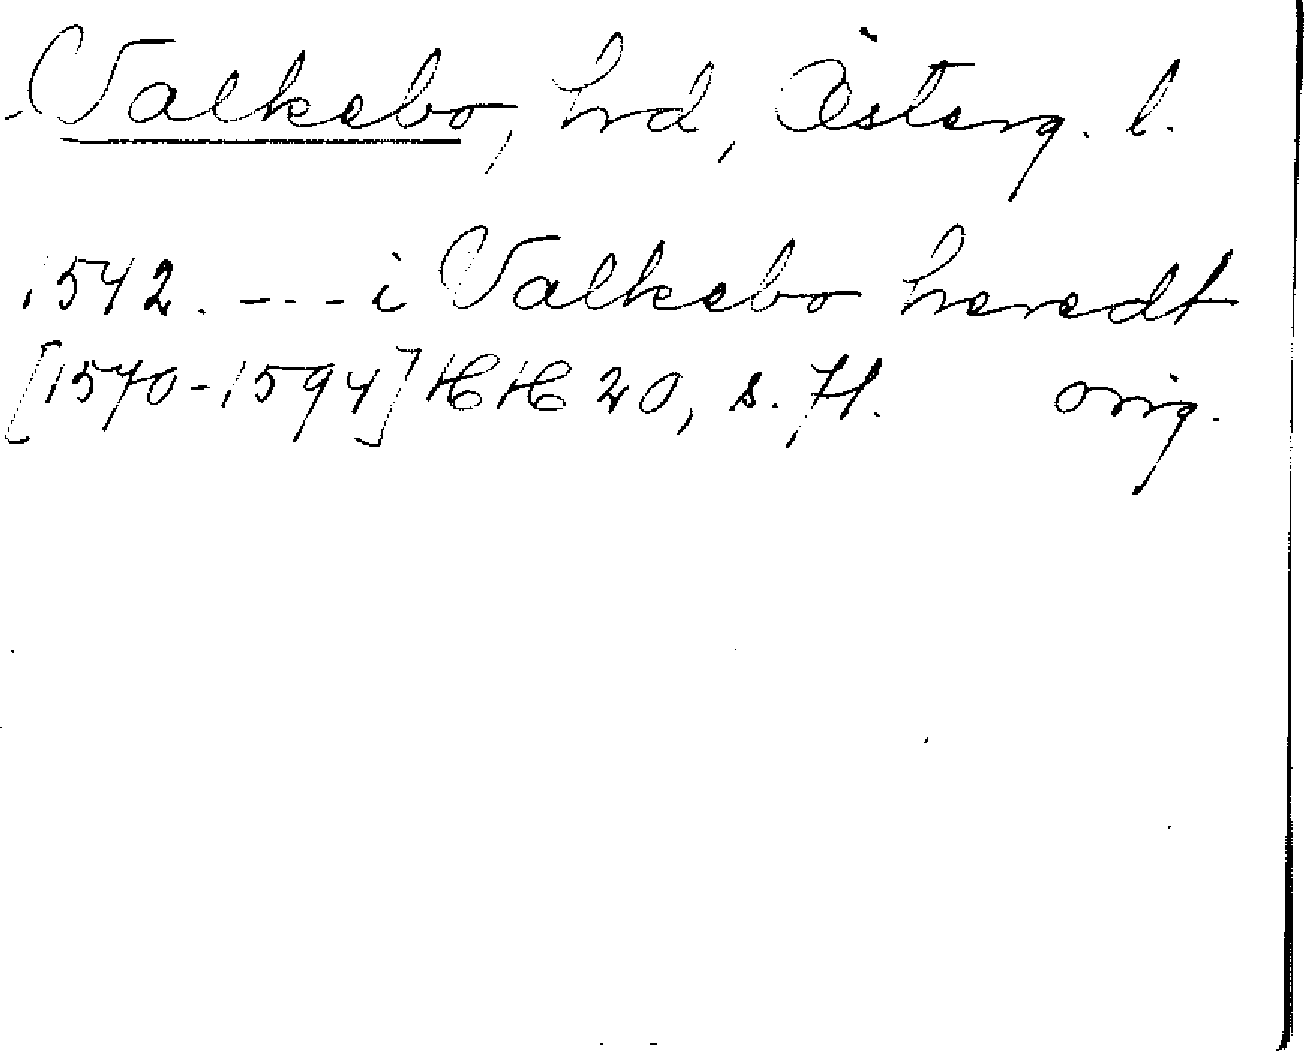 Valkebo, hrd, Österg. l.
1542. --- i Valkebo heredt
[1570-1594] HH 20, s. 71. orig.